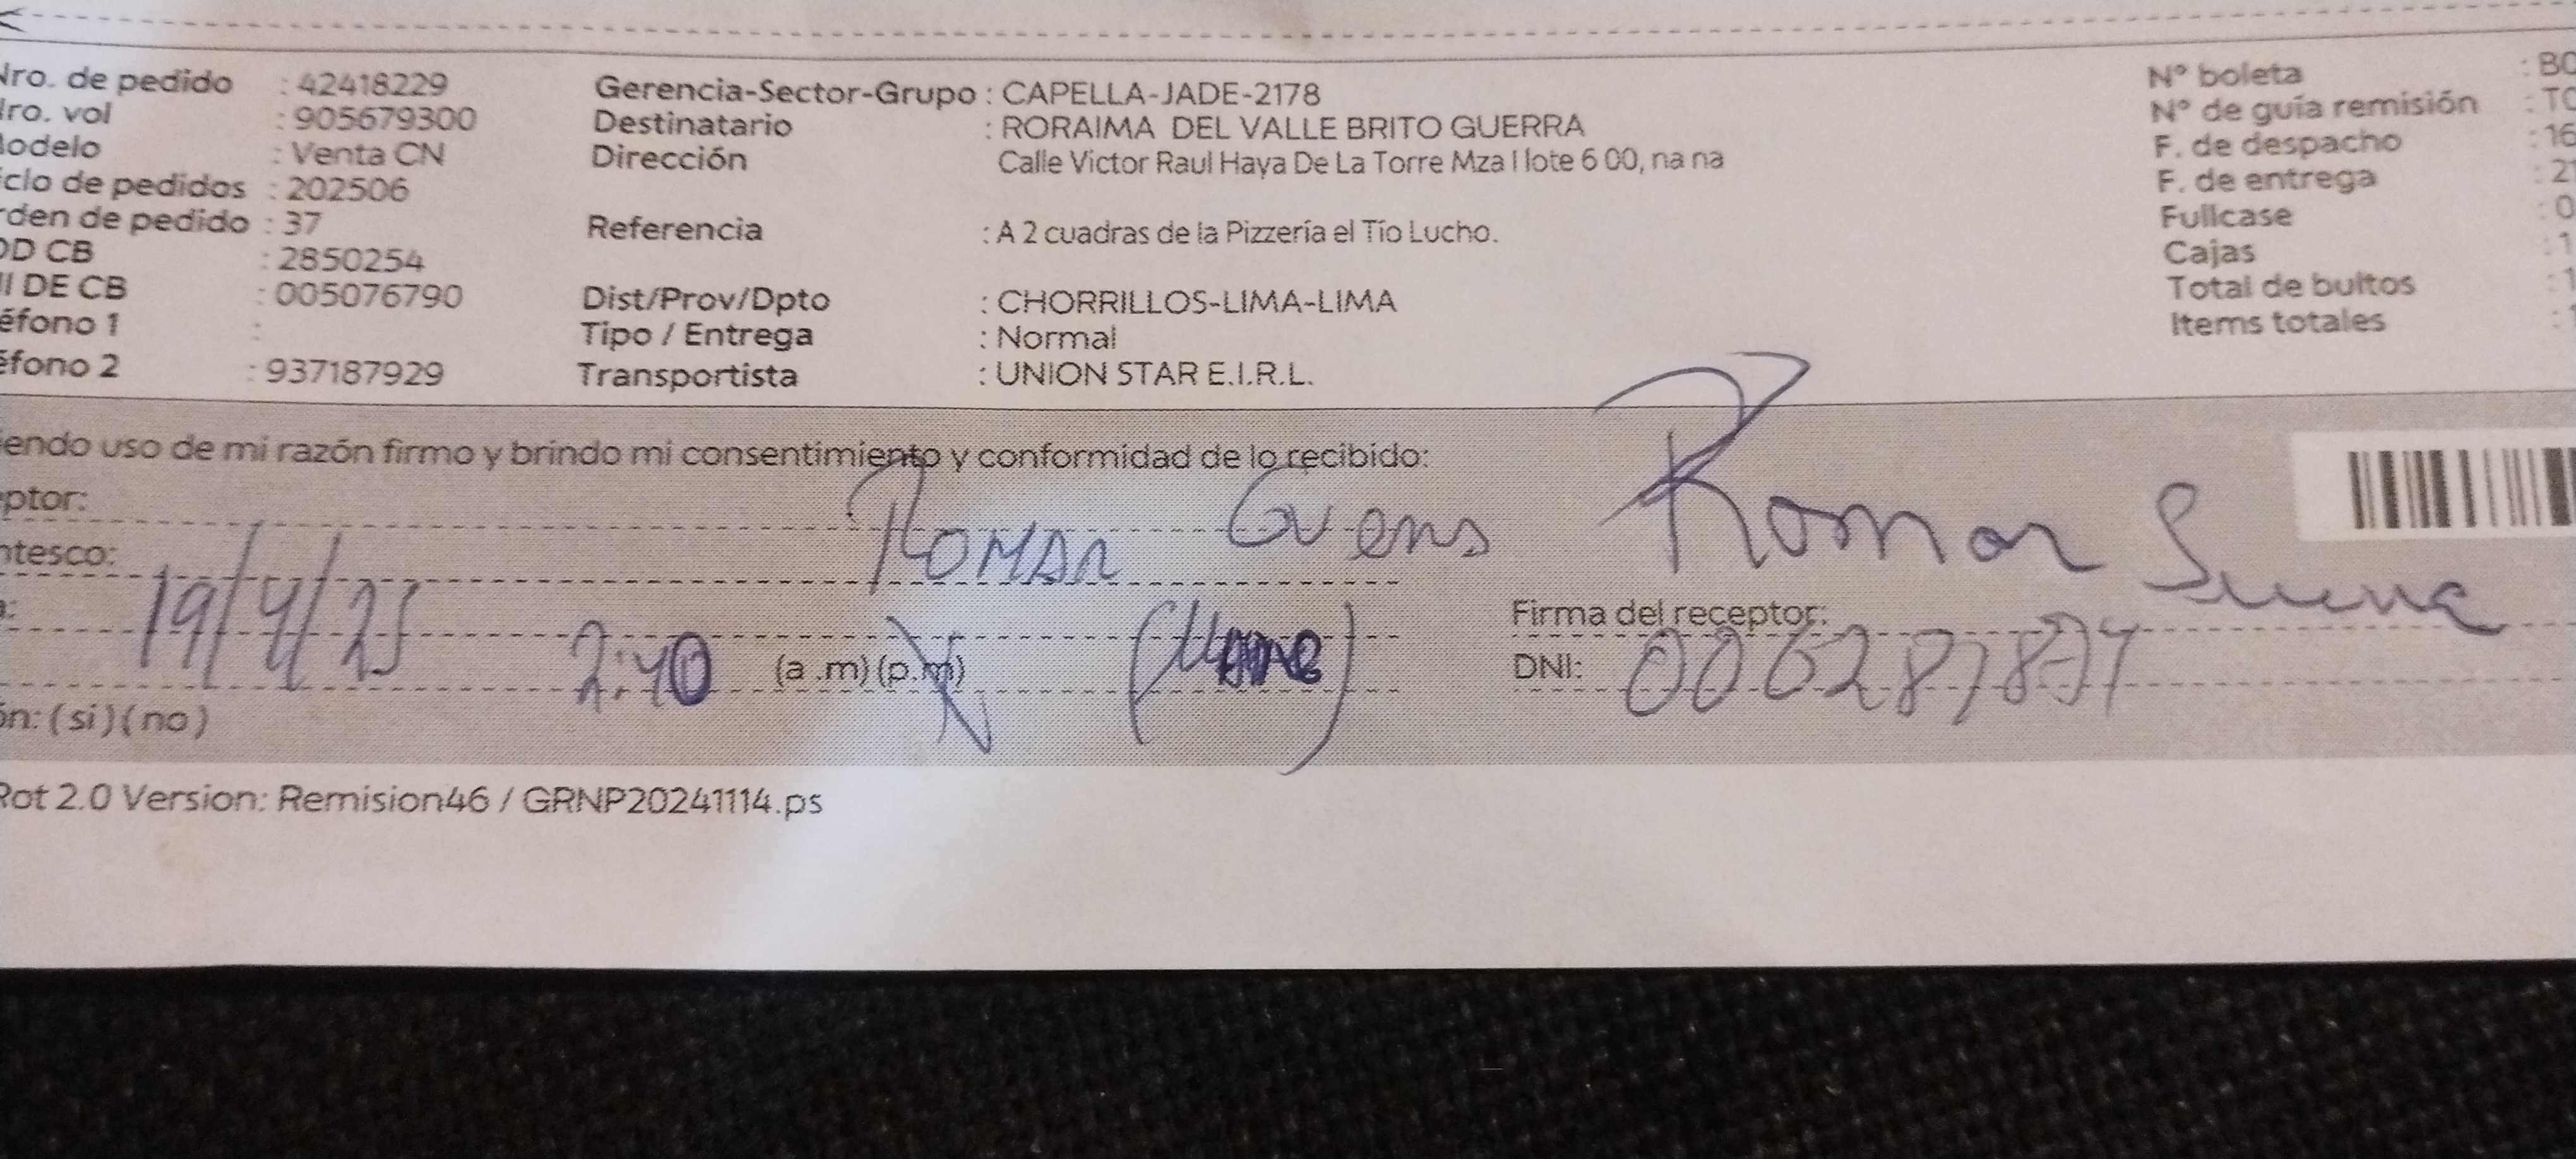 Nro. de pedido : 42418229 Gerencia-Sector-Grupo : CAPELLA-JADE-2178 N° boleta : B0
Nro. vol : 905679300 Destinatario : RORAIMA DEL VALLE BRITO GUERRA N° de guía remisión : T0
Modelo : Venta CN Dirección Calle Victor Raul Haya De La Torre Mza I lote 6 00, na na F. de despacho : 16
iclo de pedidos : 202506 F. de entrega : 21
rden de pedido : 37 Referencia : A 2 cuadras de la Pizzería el Tío Lucho. Fullcase : 0
OD CB : 2850254 Cajas : 1
NI DE CB : 005076790 Dist/Prov/Dpto : CHORRILLOS-LIMA-LIMA Total de bultos : 1
éfono 1 : Tipo / Entrega : Normal Items totales : 1
éfono 2 : 937187929 Transportista : UNION STAR E.I.R.L.
iendo uso de mi razón firmo y brindo mi consentimiento y conformidad de lo recibido:
eptor: Roman
ntesco:
a: 19/4/25 2:40 (a .m) (p.m) Firma del receptor: Roman
DNI:
ón: ( si ) ( no )
Rot 2.0 Version: Remision46 / GRNP20241114.ps